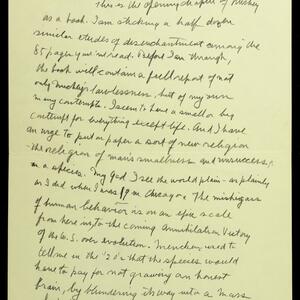 This is the opening chapter of Mickey
as a book. I am sticking a half dozen
similar etudes of disenchantment among the
85 pages you've read. Before I am through,
the book will contain a full report of not
only Mickey's lawlessness but of my own
in my contempts. I seem to have a small or big
contempt for everything except life. And I have
an urge to put on paper a sort of new religion
- the religion of man's smallness and unsuccess,
as a species. My God I see the world plain - as plainly
as I did when I was 19 in Chicago. The mishegas
of human behavior is on an epic scale
from here into the coming Annihilation Victory
of the U.S. over evolution. Mencken used to
tell me in the '20's that the species would
have to pay for not growing an honest
brain, by blundering its way into a mass